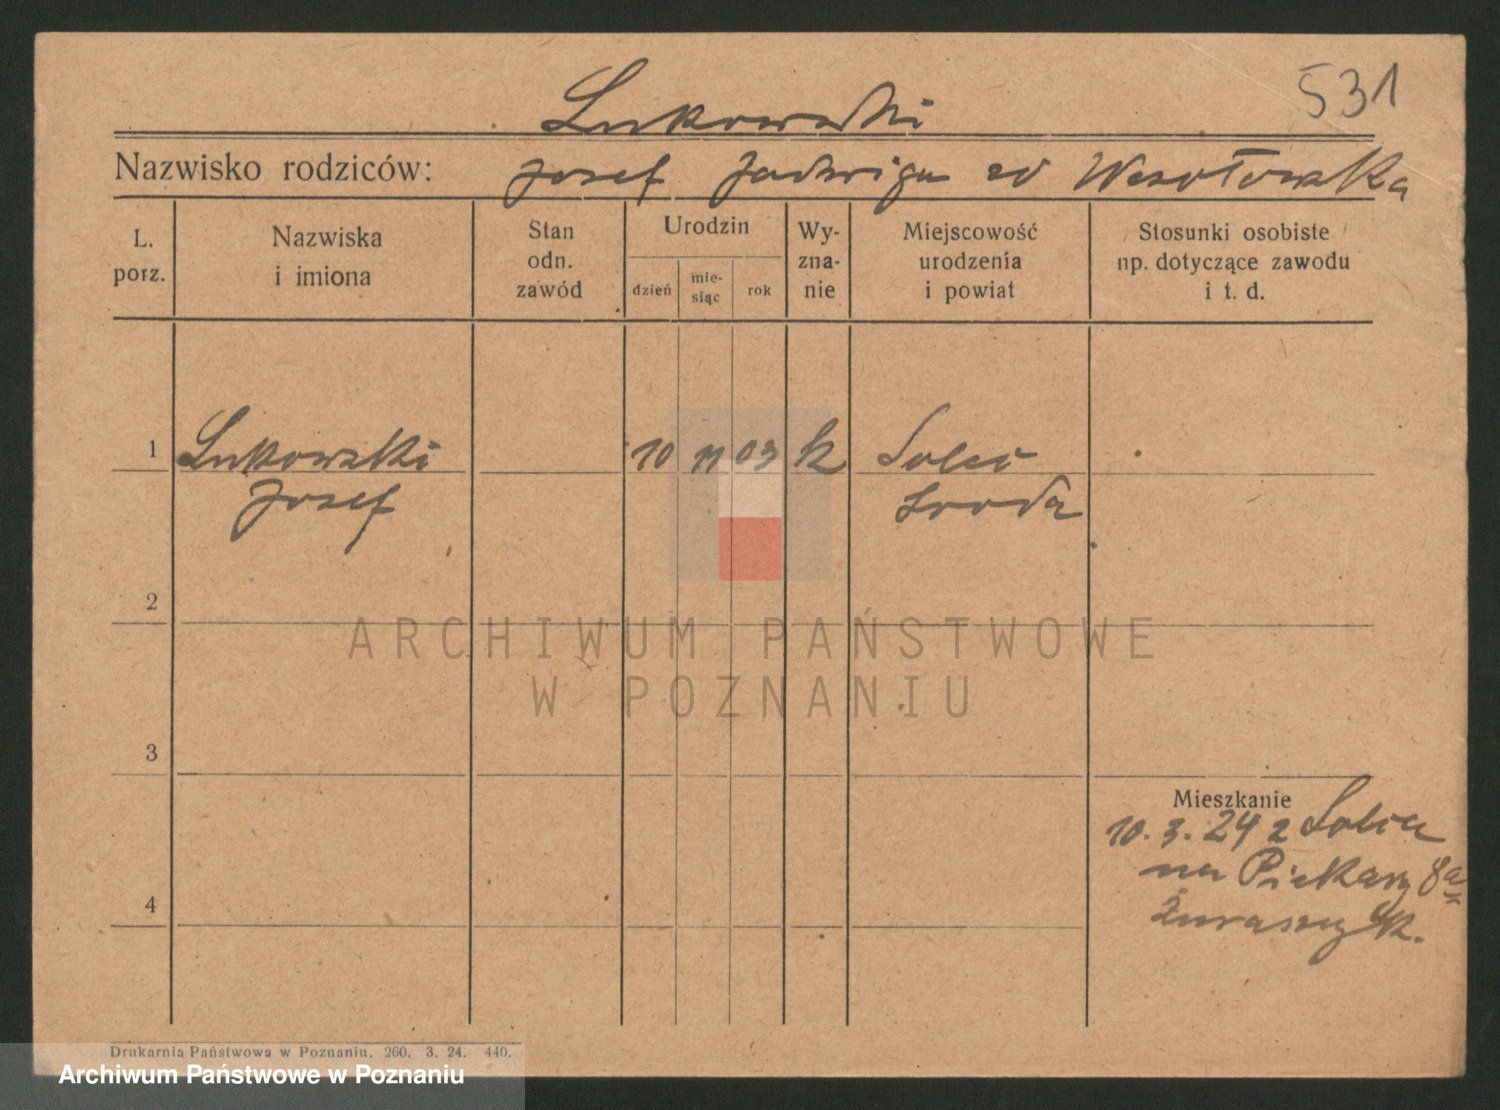 531
Lukowski
Nazwisko rodziców: Josef Jadwiga zd Wesołowska
L. porz.
Nazwiska i imiona
Stan odn. zawód
Urodzin
dzień
mie-siąc
rok
Wy-zna-nie
Miejscowość urodzenia i powiat
Stosunki osobiste np. dotyczące zawodu i t. d.
1 Lukowski 10 11 03 k Solec
Josef Sroda
2
ARCHIWUM PAŃSTWOWE
W POZNANIU
3
Mieszkanie
10. 3. 24 z Solca
na Piekary 8a
4
Drukarnia Państwowa w Poznaniu. 260. 3. 24. 440.
Archiwum Państwowe w Poznaniu